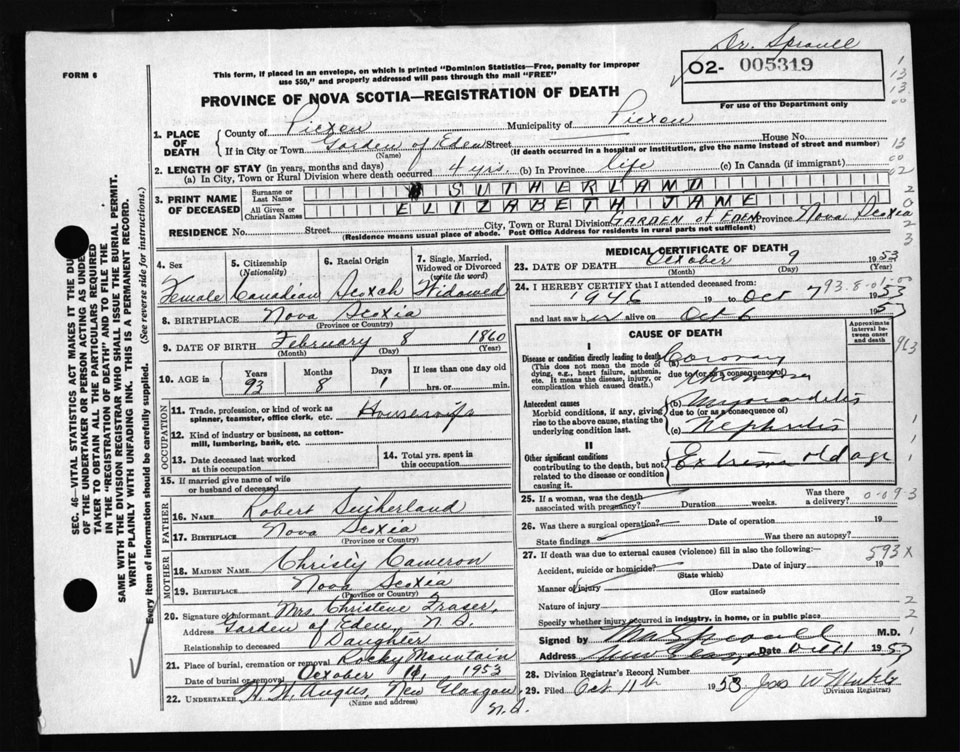 Dr. Sproull
FORM 6
This form, if placed in an envelope, on which is printed "Dominion Statistics—Free, penalty for improper
use $50," and properly addressed will pass through the mail "FREE"
O2- 005319
For use of the Department only
PROVINCE OF NOVA SCOTIA—REGISTRATION OF DEATH
1. PLACE OF DEATH
County of Pictou Municipality of Pictou
If in City or Town Garden of Eden Street House No.
(Name) (If death occurred in a hospital or institution, give the name instead of street and number)
2. LENGTH OF STAY (in years, months and days)
(a) In City, Town or Rural Division where death occurred 4 yrs. (b) In Province life (c) In Canada (if immigrant)
3. PRINT NAME OF DECEASED
Surname or Last Name SUTHERLAND
All Given or Christian Names ELIZABETH JANE
RESIDENCE No. Street City, Town or Rural Division GARDEN of EDEN Province Nova Scotia
(Residence means usual place of abode. Post Office Address for residents in rural parts not sufficient)
4. Sex
Female
5. Citizenship
(Nationality)
Canadian
6. Racial Origin
Scotch
7. Single, Married, Widowed or Divorced
(write the word)
Widowed
8. BIRTHPLACE Nova Scotia
(Province or Country)
9. DATE OF BIRTH February 8 1860
(Month) (Day) (Year)
10. AGE in Years Months Days If less than one day old
93 8 1 hrs. or min.
OCCUPATION
11. Trade, profession, or kind of work as Housewife
spinner, teamster, office clerk, etc.
12. Kind of industry or business, as cotton-
mill, lumbering, bank, etc.
13. Date deceased last worked
at this occupation
14. Total yrs. spent in
this occupation
15. If married give name of wife
or husband of deceased
FATHER
16. NAME Robert Sutherland
17. BIRTHPLACE Nova Scotia
(Province or Country)
MOTHER
18. MAIDEN NAME Christy Cameron
19. BIRTHPLACE Nova Scotia
(Province or Country)
20. Signature of informant Mrs. Christene Fraser,
Address Garden of Eden, N.S.
Relationship to deceased Daughter
21. Place of burial, cremation or removal Rocky Mountain
Date of burial or removal October 11, 1953
22. UNDERTAKER Angus, New Glasgow
(Name and address) N.S.
MEDICAL CERTIFICATE OF DEATH
23. DATE OF DEATH October 9 1953
(Month) (Day) (Year)
24. I HEREBY CERTIFY that I attended deceased from:
1946 19 to Oct 7 1953
and last saw her alive on Oct 6 1953
CAUSE OF DEATH
Approximate interval between onset and death
I
Disease or condition directly leading to death (a) Coronary
(This does not mean the mode of dying, e.g., heart failure, asthenia, etc. It means the disease, injury, or complication which caused death.)
due to (or as a consequence of)
thrombosis
Antecedent causes
Morbid conditions, if any, giving rise to the above cause, stating the underlying condition last.
(b) Myocarditis
due to (or as a consequence of)
(c) Nephritis
II
Other significant conditions
contributing to the death, but not related to the disease or condition causing it.
Extreme old age
25. If a woman, was the death
associated with pregnancy? Duration weeks. Was there a delivery?
26. Was there a surgical operation? Date of operation 19
State findings Was there an autopsy?
27. If death was due to external causes (violence) fill in also the following:—
Accident, suicide or homicide? Date of injury 19
(State which)
Manner of injury
(How sustained)
Nature of injury
Specify whether injury occurred in industry, in home, or in public place
Signed by Sproull M.D.
Address New Glasgow Date Oct 11 1953
28. Division Registrar's Record Number
29. Filed Oct 11th 1953 Jas W
(Division Registrar)
SEC. 46—VITAL STATISTICS ACT MAKES IT THE DUTY
OF THE UNDERTAKER OR PERSON ACTING AS UNDER-
TAKER TO OBTAIN ALL THE PARTICULARS REQUIRED
IN THE "REGISTRATION OF DEATH" AND TO FILE THE
SAME WITH THE DIVISION REGISTRAR WHO SHALL ISSUE THE BURIAL PERMIT.
WRITE PLAINLY WITH UNFADING INK. THIS IS A PERMANENT RECORD.
Every item of information should be carefully supplied. (See reverse side for instructions.)